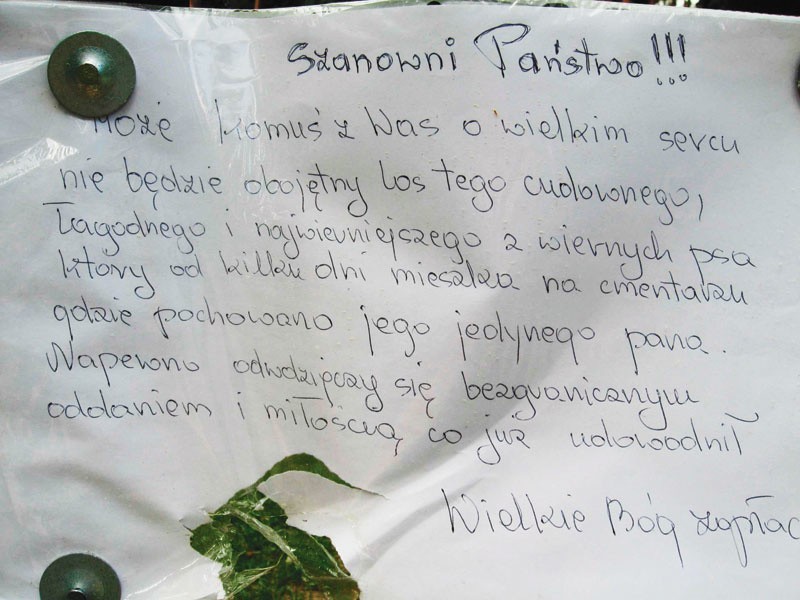 Szanowni Państwo!!!
Może komuś z Was o wielkim sercu
nie będzie obojętny los tego cudownego,
łagodnego i najwierniejszego z wiernych psa
który od kilku dni mieszka na cmentarzu
gdzie pochowano jego jedynego pana.
Napewno odwdzięczy się bezgranicznym
oddaniem i miłością, co już udowodnił
Wielkie Bóg zapłac